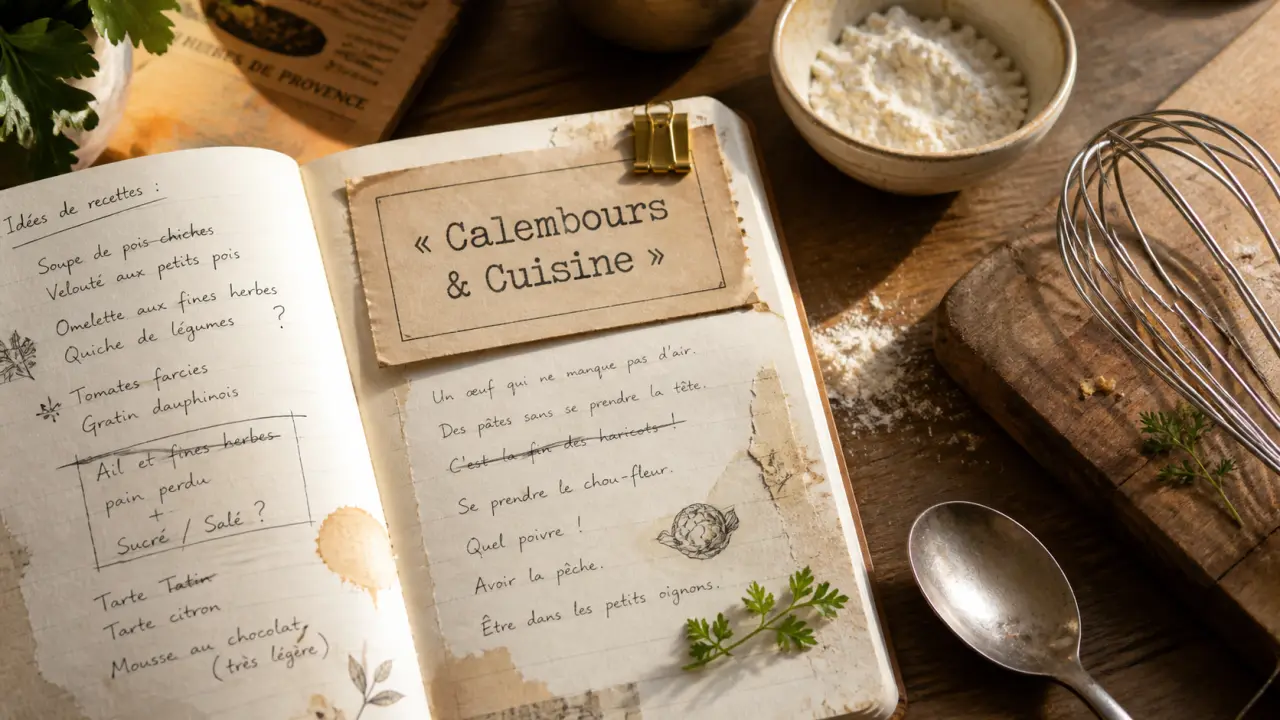 HERBES DE PROVENCE
Idées de recettes :
Soupe de pois chiches
Velouté aux petits pois
Omelette aux fines herbes
Quiche de légumes ?
Tomates farcies
Gratin dauphinois
Ail et fines herbes
pain perdu
+
Sucré / Salé ?
Tarte Tatin
Tarte citron
Mousse au chocolat
(très légère)
« Calembours
& Cuisine »
Un œuf qui ne manque pas d'air.
Des pâtes sans se prendre la tête.
C'est la fin des haricots !
Se prendre le chou-fleur.
Quel poivre !
Avoir la pêche.
Être dans les petits oignons.